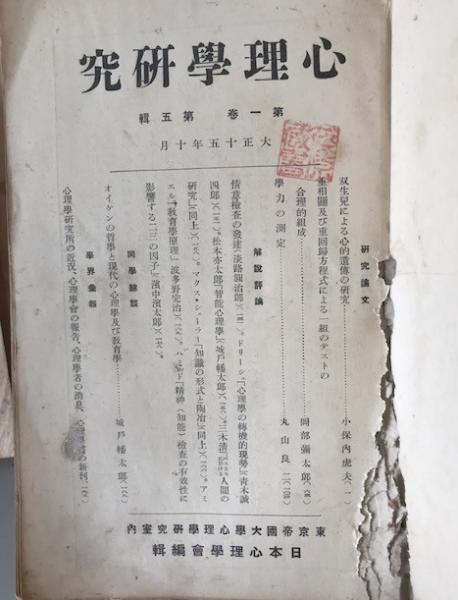 心理學研究
第一卷 第五輯
大正十五年十月
研究論文
双生兒による心的遺傳の研究……小保內虎夫(一)
重相關及び重回歸方程式による一組のテストの
合理的組成……岡部彌太郎
學力の測定……丸山良二
解說評論
情意檢査の發達、淡路圓治郎 ドリーシュ『心理學の轉機的現勢』靑木誠
四郎 松本亦太郎『智能心理學』城戶幡太郎 三木淸 人間の
研究』同上 マクス・シェーラー『知識の形式と陶冶』同上 アミ
エル『敎育學原理』波多野完治 ハミルド『精神(知能)檢査の有效性に
影響する二三の因子』濱中濱太郎
問學雜談
オイケンの哲學と現代の心理學及び敎育學……城戶幡太郎
學界彙報
心理學研究所の近況、心理學會の報告、心理學者の消息、心理學書の新刊
東京帝國大學心理學研究室內
日本心理學會編輯